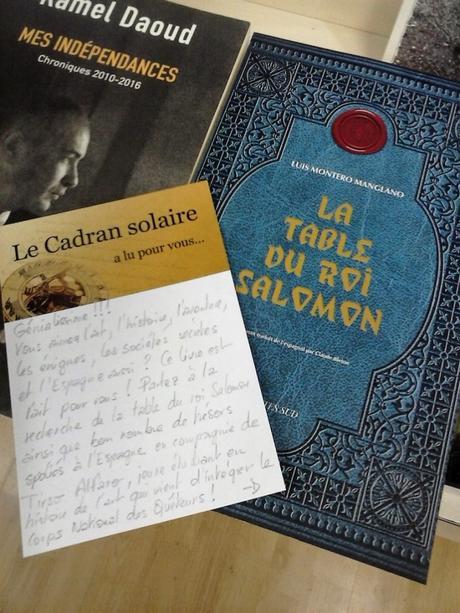 Kamel Daoud
MES INDÉPENDANCES
Chroniques 2010-2016
Le Cadran solaire
a lu pour vous...
Génialissime !!!
Vous aimez l'art, l'histoire, l'aventure,
les énigmes, les sociétés secrètes
et l'Espagne aussi ? Ce livre est
fait pour vous ! Partez à la
recherche de la table du roi Salomon
ainsi que bon nombre de trésors
spoliés à l'Espagne en compagnie de
Tirso Alfaro, jeune étudiant en
histoire de l'art qui vient d'intégrer le
Corps National des Quêteurs !
LUIS MONTERO MANGLANO
LA
TABLE
DU ROI
SALOMON
roman traduit de l'espagnol par Claude Bleton
ACTES SUD